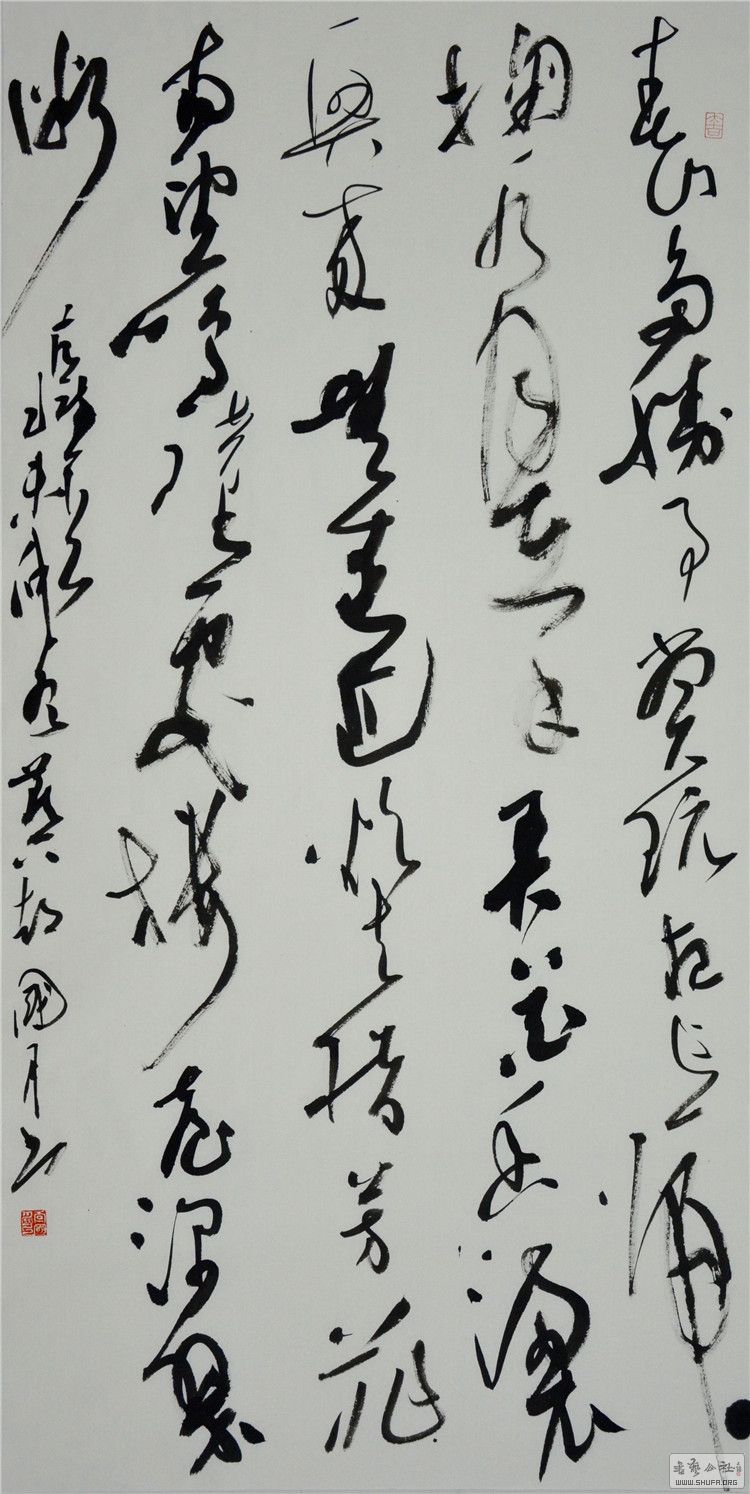 春山多勝事賞玩夜忘歸
掬水月在手弄花香滿衣
興來無遠近欲去惜芳菲
南望鳴鐘處樓臺深翠
微
國月书
书艺公社
WWW.SHUFA.ORG